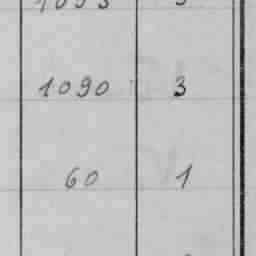 1090 3
60 1